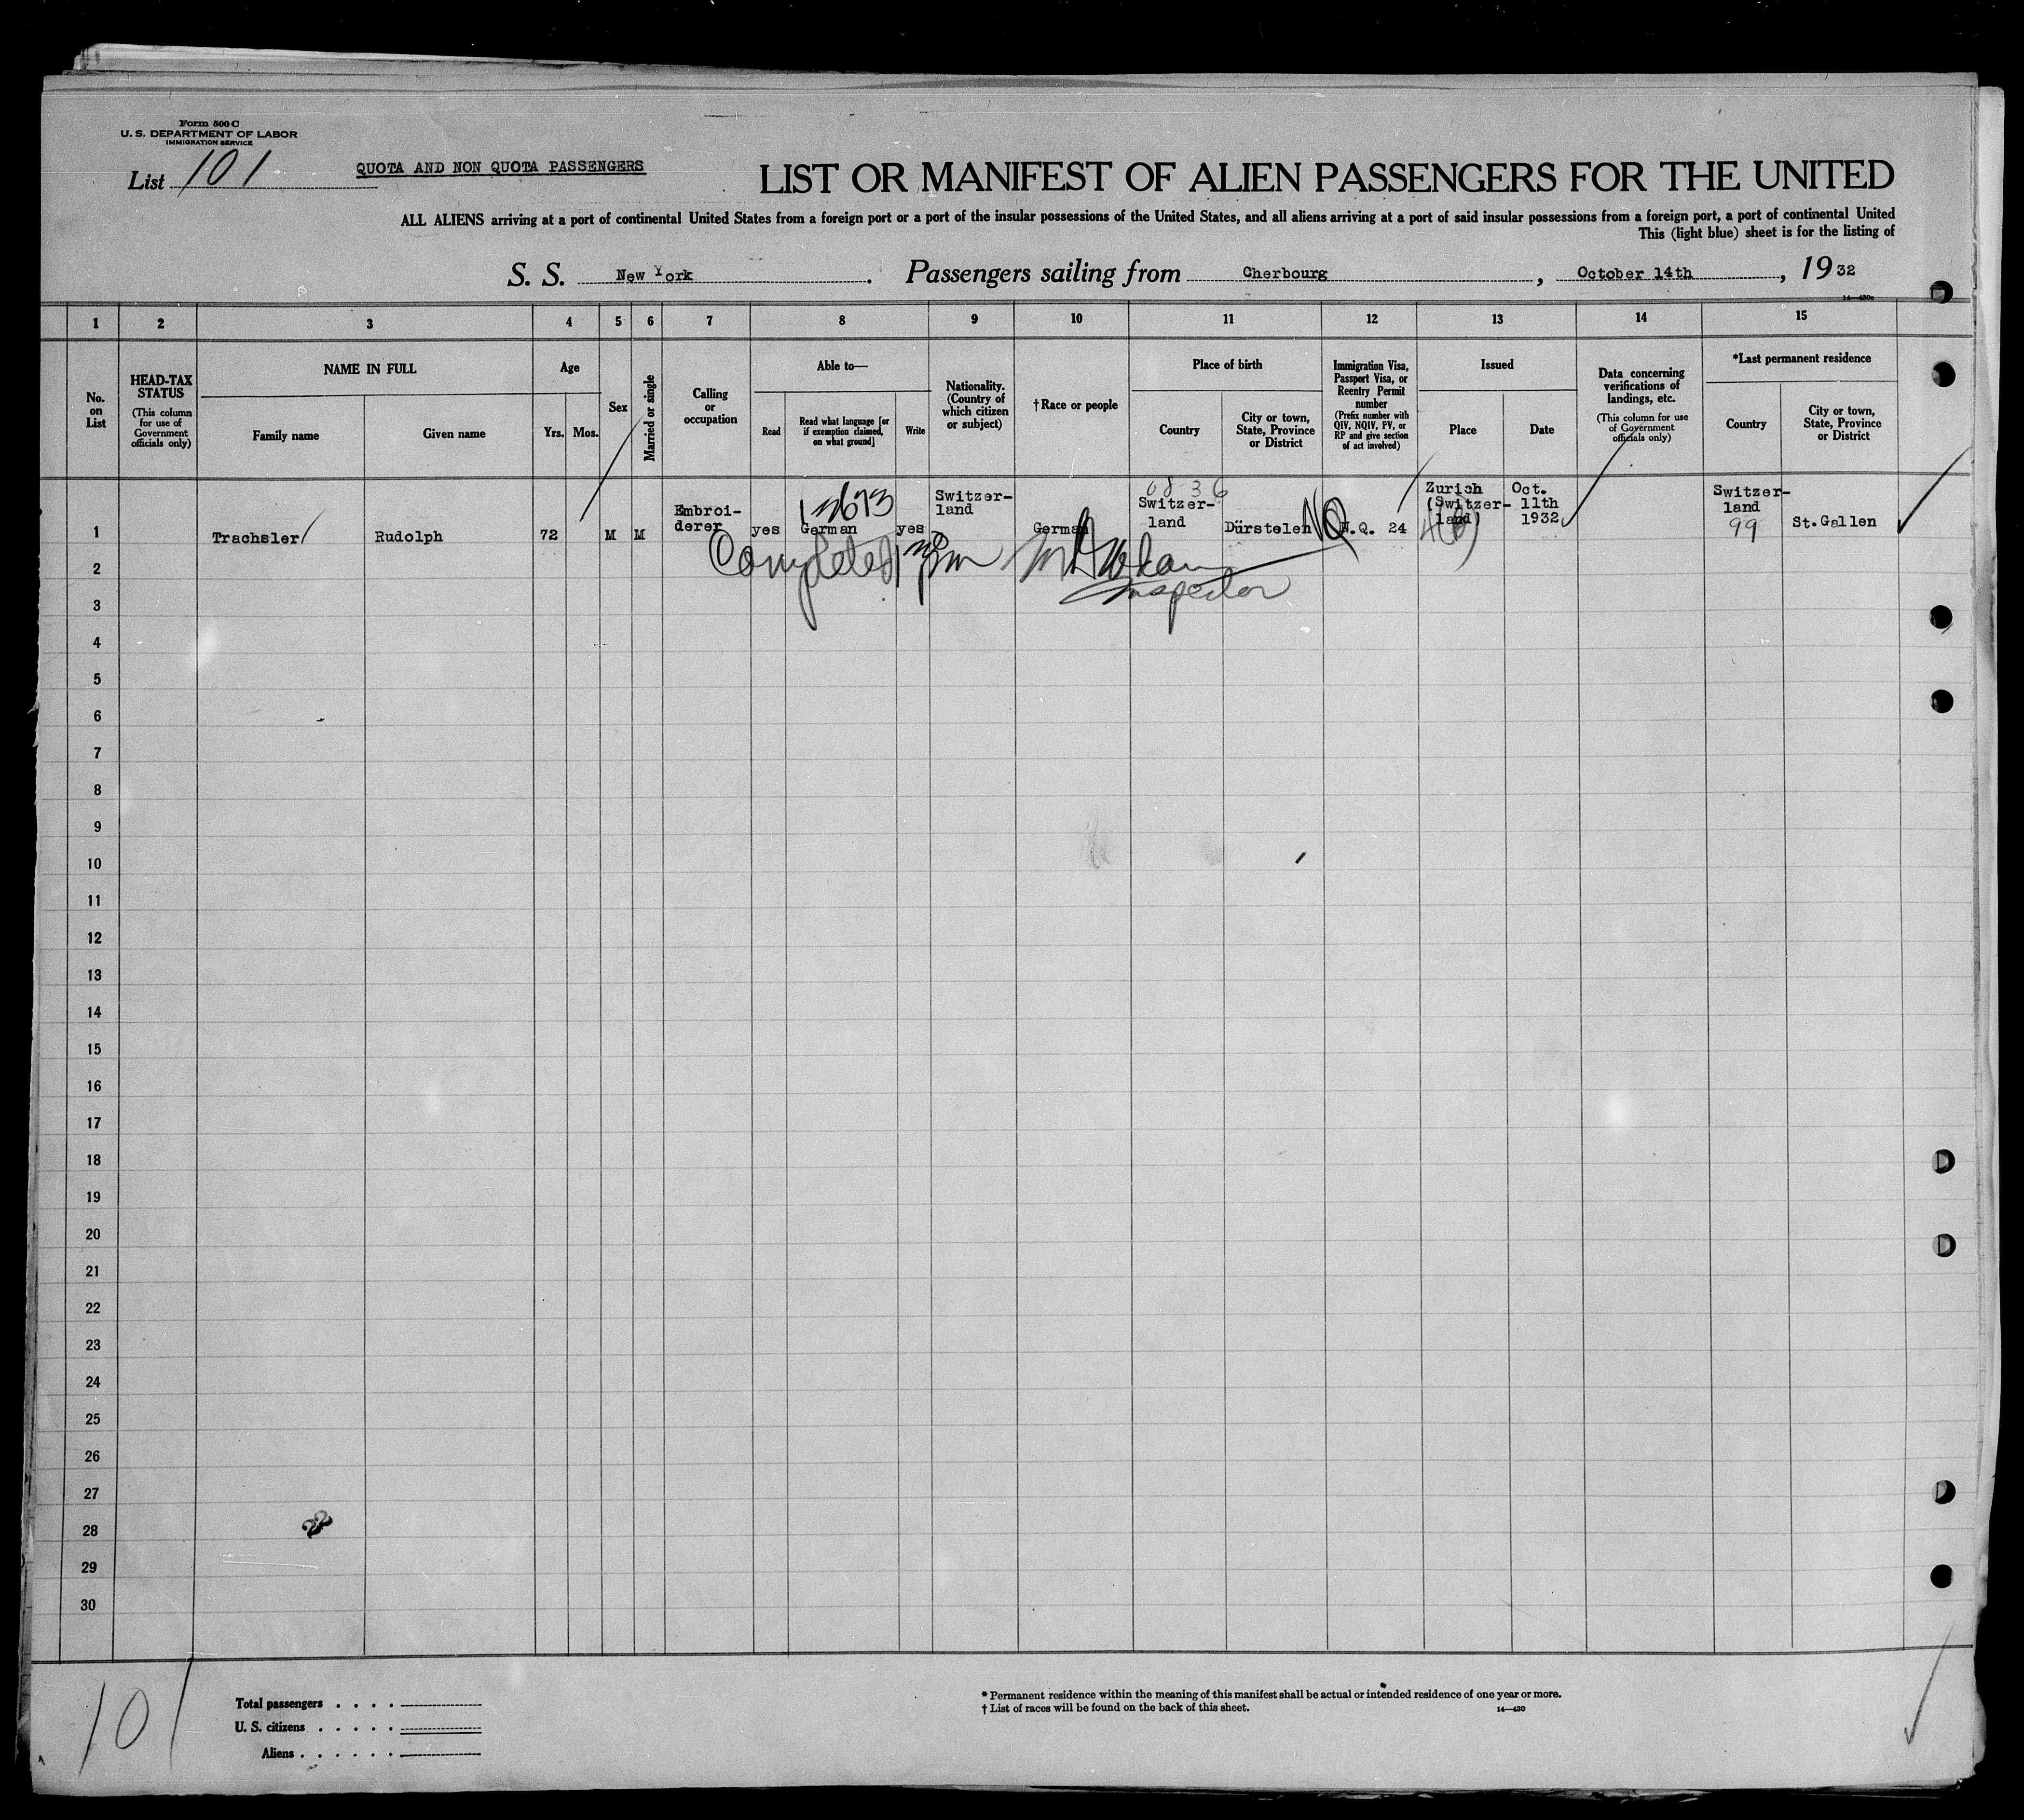 Form 500 C
U. S. DEPARTMENT OF LABOR
IMMIGRATION SERVICE
List 101
QUOTA AND NON QUOTA PASSENGERS
LIST OR MANIFEST OF ALIEN PASSENGERS FOR THE UNITED
ALL ALIENS arriving at a port of continental United States from a foreign port or a port of the insular possessions of the United States, and all aliens arriving at a port of said insular possessions from a foreign port, a port of continental United
This (light blue) sheet is for the listing of
S. S. New York. Passengers sailing from Cherbourg, October 14th, 1932
14—430c
1 2 3 4 5 6 7 8 9 10 11 12 13 14 15
No. on List
HEAD-TAX STATUS
(This column for use of Government officials only)
NAME IN FULL
Family name
Given name
Age
Yrs. Mos.
Sex
Married or single
Calling or occupation
Able to—
Read
Read what language [or if exemption claimed, on what ground]
Write
Nationality. (Country of which citizen or subject)
† Race or people
Place of birth
Country
City or town, State, Province or District
Immigration Visa, Passport Visa, or Reentry Permit number
(Prefix number with QIV, NQIV, PV, or RP and give section of act involved)
Issued
Place
Date
Data concerning verifications of landings, etc.
(This column for use of Government officials only)
*Last permanent residence
Country
City or town, State, Province or District
1 Trachsler Rudolph 72 M M Embroi-derer yes German yes Switzer-land German Switzer-land Dürstelen N.Q. 24 Zurich (Switzer-land) Oct. 11th 1932 Switzer-land St.Gallen
08 36
NQ
4(b)
99
Completed
Inspector
2
3
4
5
6
7
8
9
10
11
12
13
14
15
16
17
18
19
20
21
22
23
24
25
26
27
28
29
30
101
Total passengers . . . .
U. S. citizens . . . . .
Aliens . . . . . .
* Permanent residence within the meaning of this manifest shall be actual or intended residence of one year or more.
† List of races will be found on the back of this sheet.
14—430